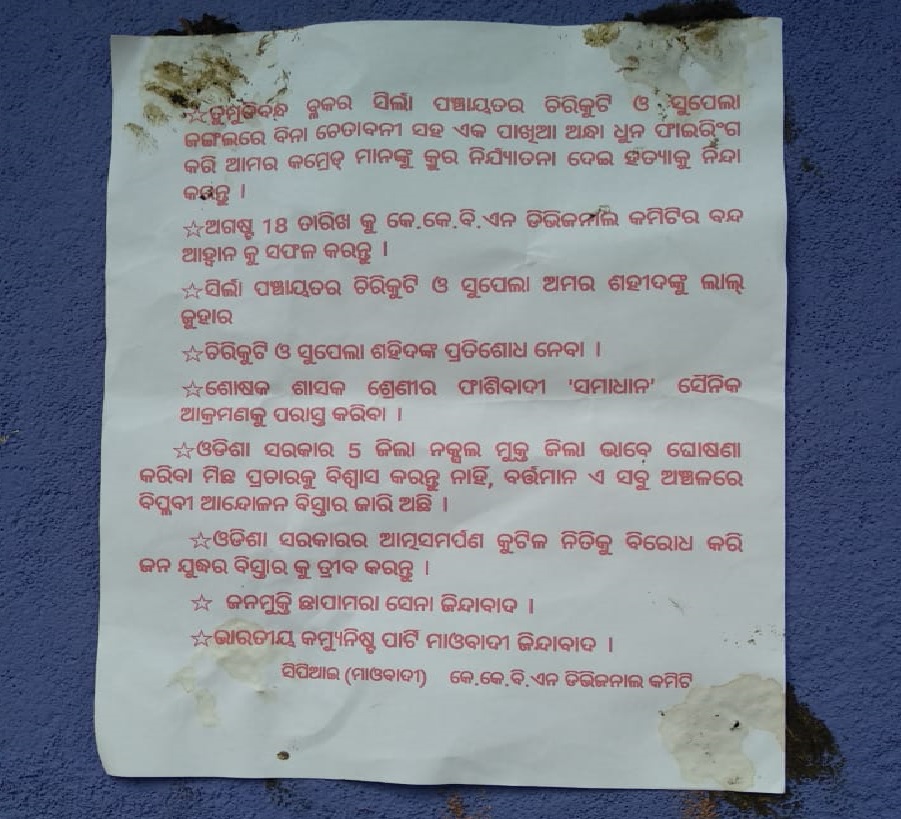 ☆ତୁମୁଡିବନ୍ଧ ବ୍ଳକର ସିର୍ଲା ପଞ୍ଚାୟତର ଚିରିକୁଟି ଓ ସୁପେଲା
ଜଙ୍ଗଲରେ ବିନା ଚେତାବନୀ ସହ ଏକ ପାଖିଆ ଅନ୍ଧା ଧୁନ ଫାଇରିଂଗ
କରି ଆମର କମ୍ରେଡ୍ ମାନଙ୍କୁ କ୍ରୁର ନିର୍ଯ୍ୟାତନା ଦେଇ ହତ୍ୟାକୁ ନିନ୍ଦା
କରନ୍ତୁ ।
☆ଅଗଷ୍ଟ 18 ତାରିଖ କୁ କେ.କେ.ବି.ଏନ ଡିଭିଜନାଲ କମିଟିର ବନ୍ଦ
ଆହ୍ୱାନ କୁ ସଫଳ କରନ୍ତୁ ।
☆ସିର୍ଲା ପଞ୍ଚାୟତର ଚିରିକୁଟି ଓ ସୁପେଲା ଅମର ଶହୀଦଙ୍କୁ ଲାଲ୍
ଜୁହାର
☆ଚିରିକୁଟି ଓ ସୁପେଲା ଶହିଦଙ୍କ ପ୍ରତିଶୋଧ ନେବା ।
☆ଶୋଷକ ଶାସକ ଶ୍ରେଣୀର ଫାଶିବାଦୀ 'ସମାଧାନ' ସୈନିକ
ଆକ୍ରମଣକୁ ପରାସ୍ତ କରିବା ।
☆ଓଡିଶା ସରକାର 5 ଜିଲା ନକ୍ସଲ ମୁକ୍ତ ଜିଲା ଭାବେ ଘୋଷଣା
କରିବା ମିଛ ପ୍ରଚାରକୁ ବିଶ୍ୱାସ କରନ୍ତୁ ନାହିଁ, ବର୍ତ୍ତମାନ ଏ ସବୁ ଅଞ୍ଚଳରେ
ବିପ୍ଳବୀ ଆନ୍ଦୋଳନ ବିସ୍ତାର ଜାରି ଅଛି ।
☆ଓଡିଶା ସରକାରର ଆତ୍ମସମର୍ପଣ କୁଟିଳ ନିତିକୁ ବିରୋଧ କରି
ଜନ ଯୁଦ୍ଧର ବିସ୍ତାର କୁ ତ୍ରୀବ କରନ୍ତୁ ।
☆ ଜନମୁକ୍ତି ଛାପାମରା ସେନା ଜିନ୍ଦାବାଦ ।
☆ଭାରତୀୟ କମ୍ୟୁନିଷ୍ଟ ପାର୍ଟି ମାଓବାଦୀ ଜିନ୍ଦାବାଦ ।
ସିପିଆଇ (ମାଓବାଦୀ) କେ.କେ.ବି.ଏନ ଡିଭିଜନାଲ କମିଟି